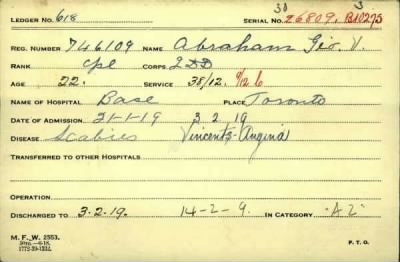 30 3
LEDGER NO. 618 SERIAL NO. 26809. B10275
REG. NUMBER 746109 NAME Abraham Geo. V.
RANK Cpl CORPS 2DD
AGE 22. SERVICE 38/12. 9/12 b
NAME OF HOSPITAL Base PLACE Toronto
DATE OF ADMISSION 21-1-19 3 2 19
DISEASE Scabies Vincents-Angina
TRANSFERRED TO OTHER HOSPITALS
OPERATION
DISCHARGED TO 3-2-19. 14-2-9. IN CATEGORY "A2"
M. F. W. 2553.
1772-39-1334.
P. T. O.